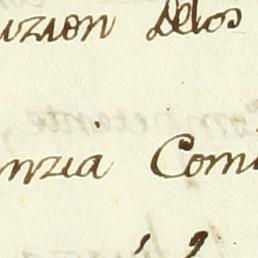 uzion Delos
nzia Com